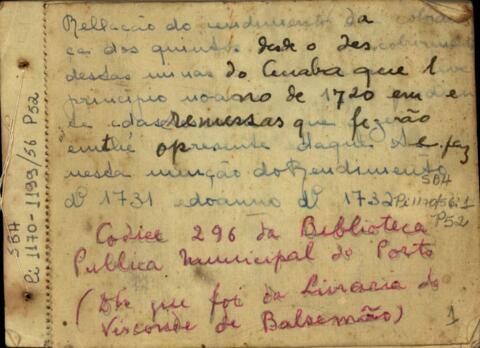 Rellação do rendimento da cobran
ca dos quintos desde o descobrimento
destas minas do Cuiaba que teve
principio no anno de 1720 em dien
te e das remessas que fezerão
emthé o presente daqui se faz
nesta menção do Rendimento
d' 1731 e do anno d' 1732
SBH
Pi 1170/56:1
P52
Codice 296 da Biblioteca
Publica Municipal do Porto
(Do que foi da Livraria do
Visconde de Balsemão)
1
SBH
Pi 1170-1199/56 P52